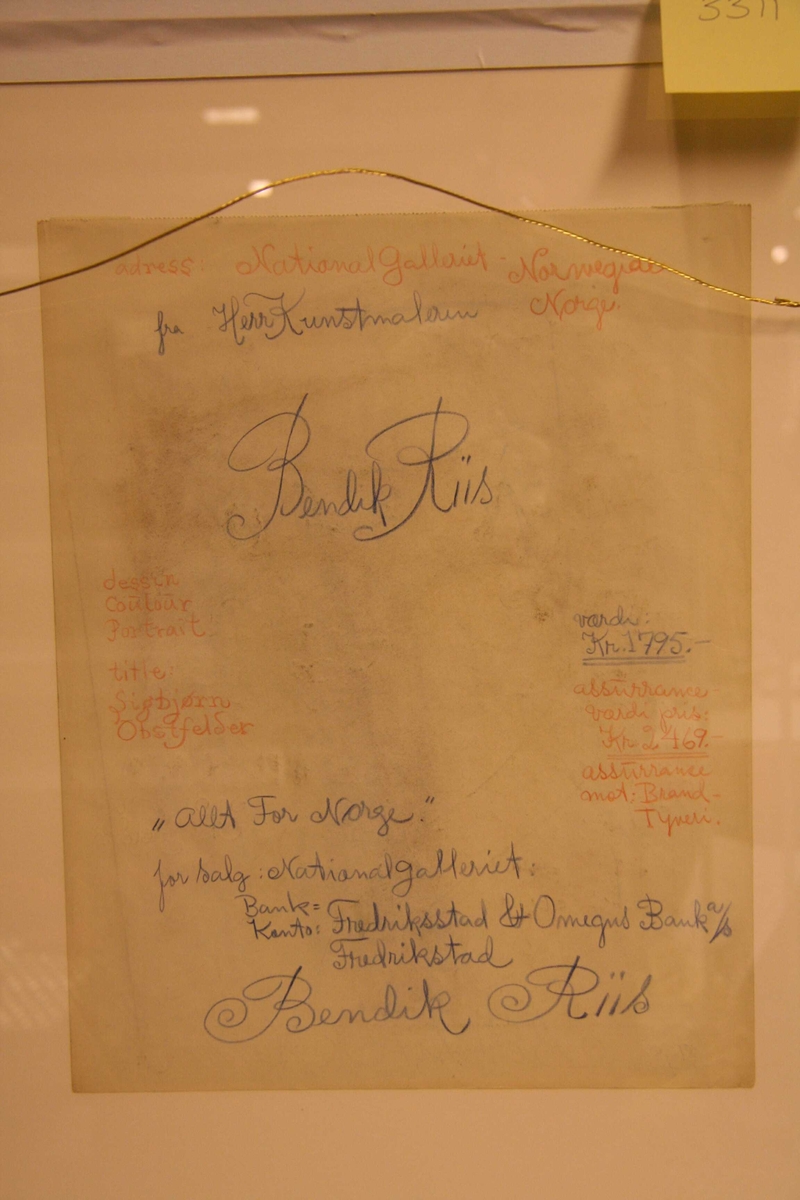 3311
adress: NationalGalleriet - Norwegian
Norge.
fra Herr Kunstmaleren
Bendik Riis
dessin
Coulour
Portrait.
title:
Sigbjørn
Obstfelder
værdi:
Kr. 1795.-
assurrance-
værdi pris:
Kr. 2469.-
assurrance
mot: Brand-
Tyveri.
„Allt For Norge."
for salg: Nationalgalleriet:
Bank=
Konto: Fredriksstad & Omegns Bank a/s
Fredrikstad
Bendik Riis